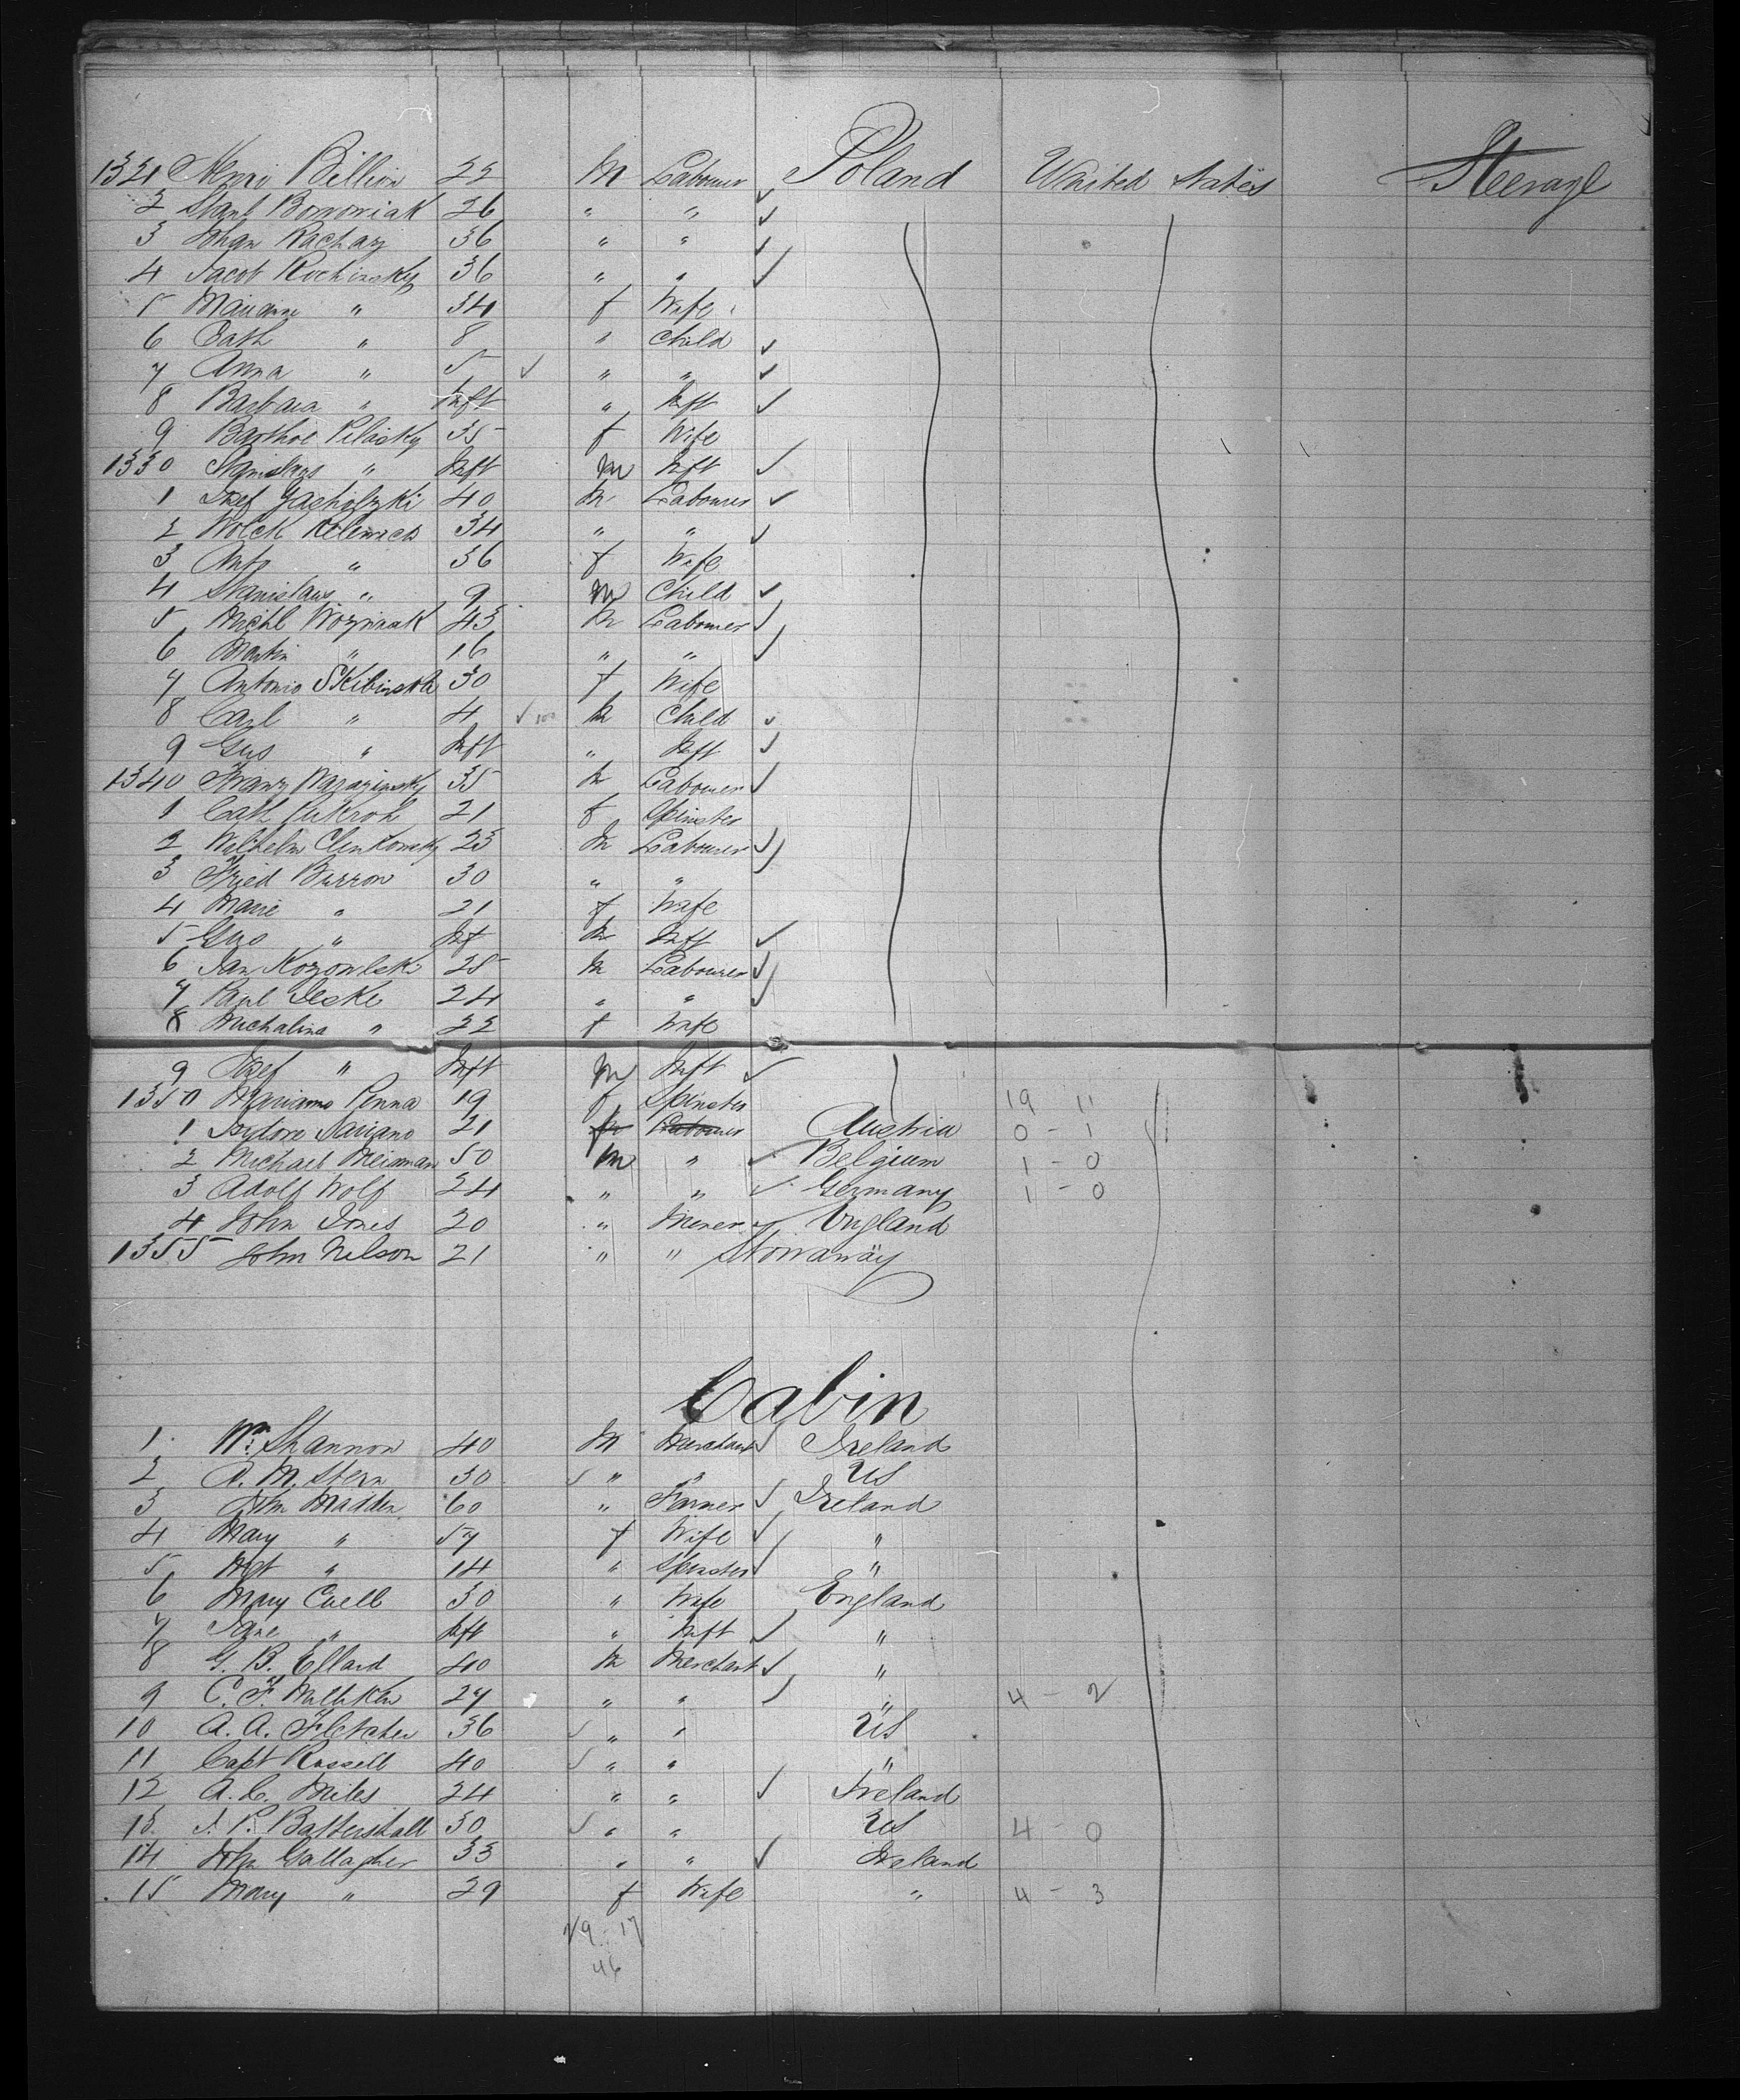 1321 Henri Billion 22 M Labourer Poland United States Steerage
2 Stanl Boroniak 26 " "
3 Johan Rachay 36 " "
4 Jacob Ruchinsky 36 " "
5 Marianne " 34 f Wife
6 Cath " 8 " Child
7 Anna " 5 " "
8 Barbara " Inft " Inft
9 Barthol Pilasky 35 f Wife
1330 Stanislaus " Inft m Inft
1 Josef 40 m Labourer
2 34 " "
3 Anto " 36 f Wife
4 Stanislaus " 9 m Child
5 Michl Wozniak 43 m Labourer
6 Martin " 16 " "
7 Antonio Skibinska 30 f Wife
8 Carl " 4 m Child
9 Gus " Inft " Inft
1340 Franz 35 m Labourer
1 Cath 21 f Spinster
2 Wilhelm Clenkowsky 23 m Labourer
3 Fried Burron 30 " "
4 Marie " 21 f Wife
5 Gus " Inft m Inft
6 Jan Kozowlski 25 m Labourer
7 Paul Jeske 24 " "
8 Michalina " 22 f Wife
9 Josef " Inft m Inft
1350 Marianna Penna 19 f Spinster 19 11
1 Isydore Saviano 21 m Labourer Austria 0 - 1
2 Michael Meisman 50 m " Belgium 1 - 0
3 Adolf Wolf 24 " " Germany 1 - 0
4 John Jones 20 " Miner England
1355 John Nelson 21 " " Stowaway
Cabin
1 Wm Shannon 40 M Merchant Ireland
2 A. M. Stern 30 " " US
3 John Madden 60 " Farmer Ireland
4 Mary " 57 f Wife "
5 Mgt " 14 " Spinster "
6 Mary Cuell 30 " Wife England
7 Jane " Inft " Inft "
8 G. B. Ellard 40 m Merchant "
9 C. F. Milliken 27 " " " 4 - 2
10 A. A. Fletcher 36 " " US
11 Capt Russell 40 " " "
12 A. C. Miles 24 " " Ireland
13 J. P. Battershall 30 " " US 4 - 0
14 John Gallagher 33 " " Ireland
15 Mary " 29 f Wife " 4 - 3
29 - 17
46